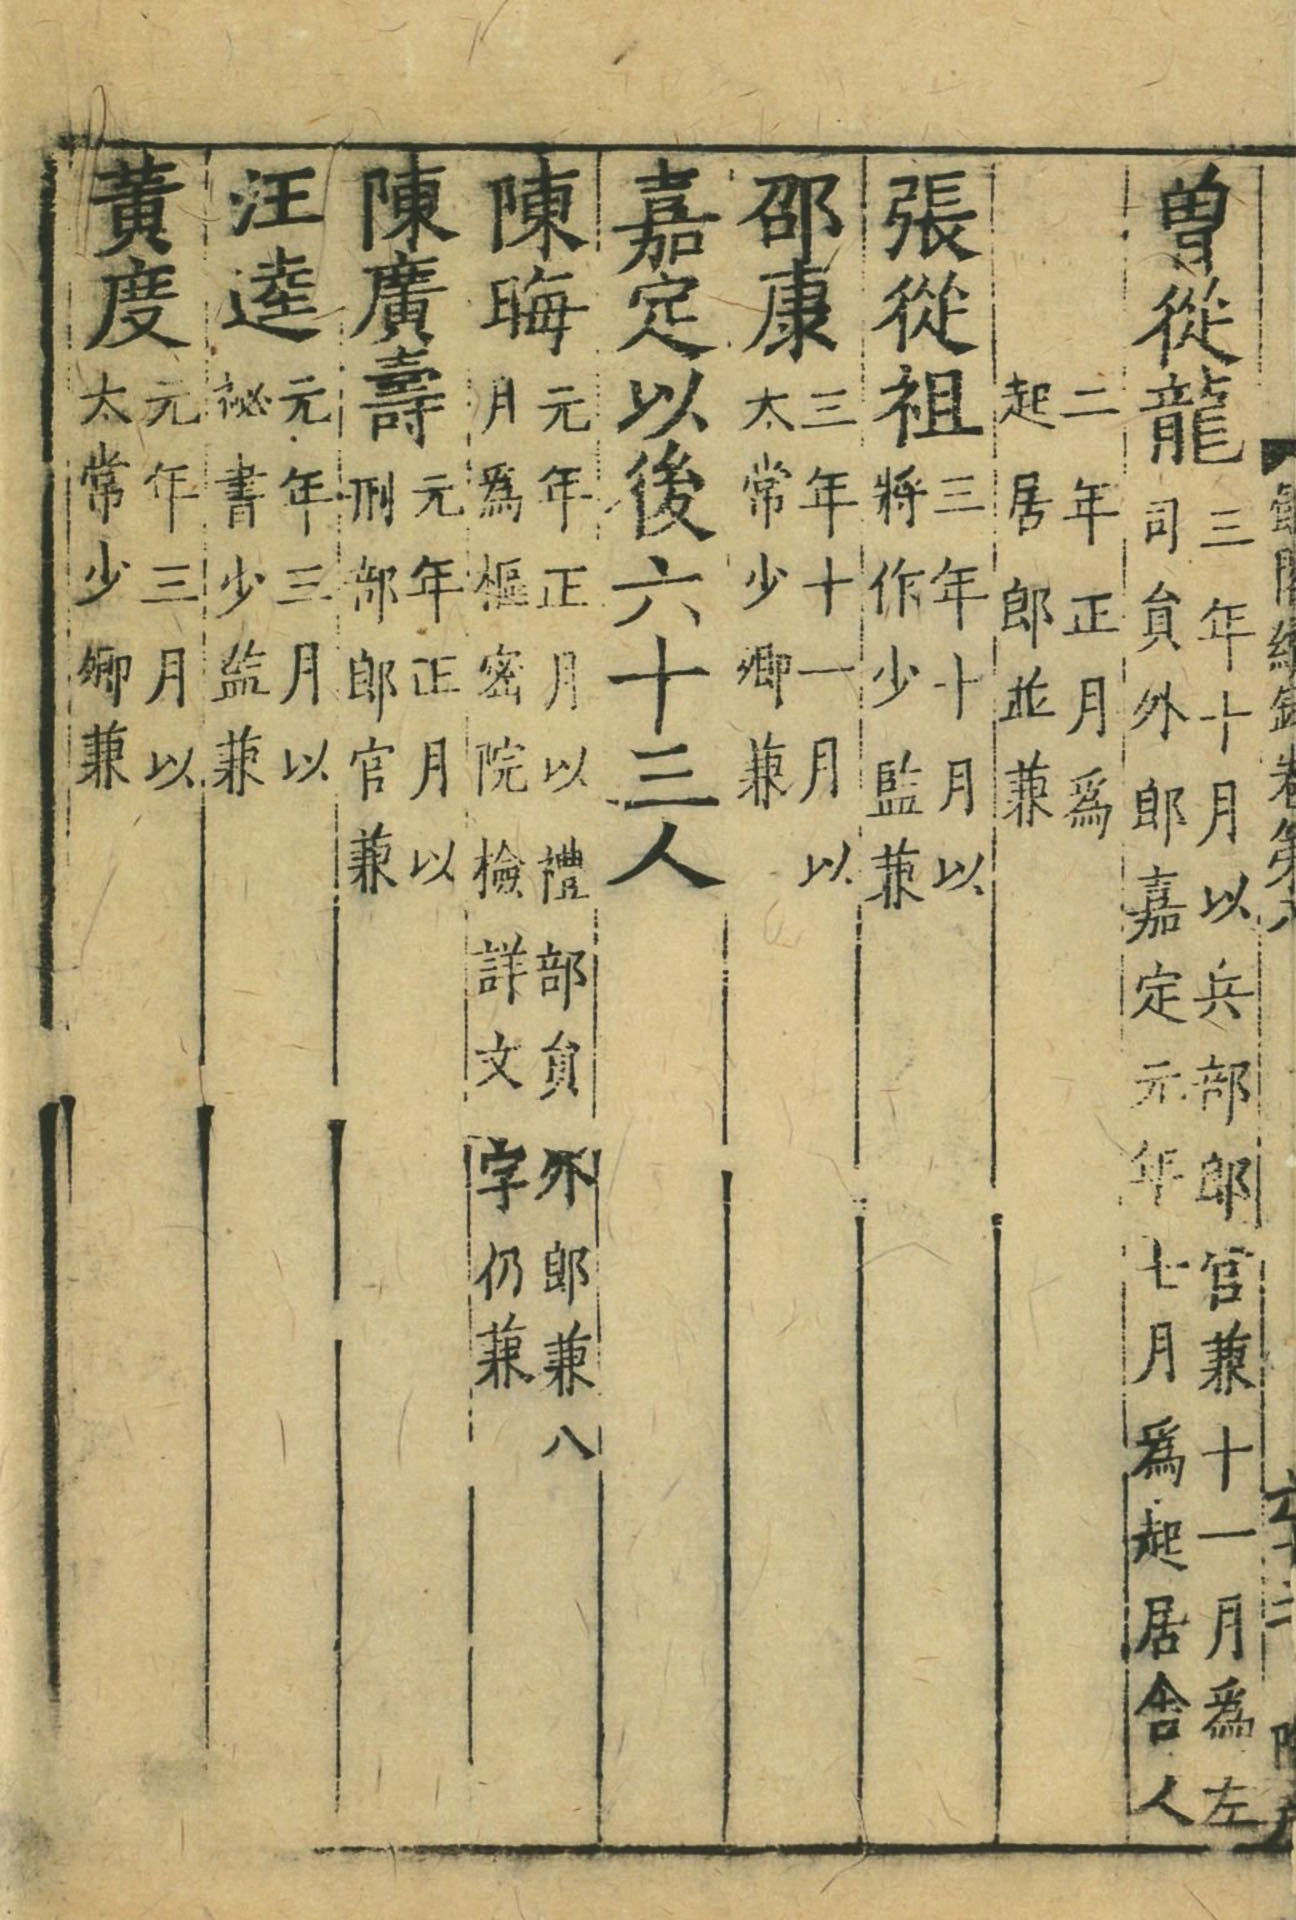 曾從龍三年十月以兵部郎官兼十一月爲左
司貟外郎嘉定元年七月爲起居舍人
二年正月爲
起居郎並兼
張從祖三年十月以
將作少監兼
邵康三年十一月以
太常少卿兼
嘉定以後六十三人
陳晦元年正月以禮部貟外郎兼八
月爲樞密院檢詳文字仍兼
陳廣壽元年正月以
刑部郎官兼
汪逵元年三月以
祕書少監兼
黃度元年三月以
太常少卿兼